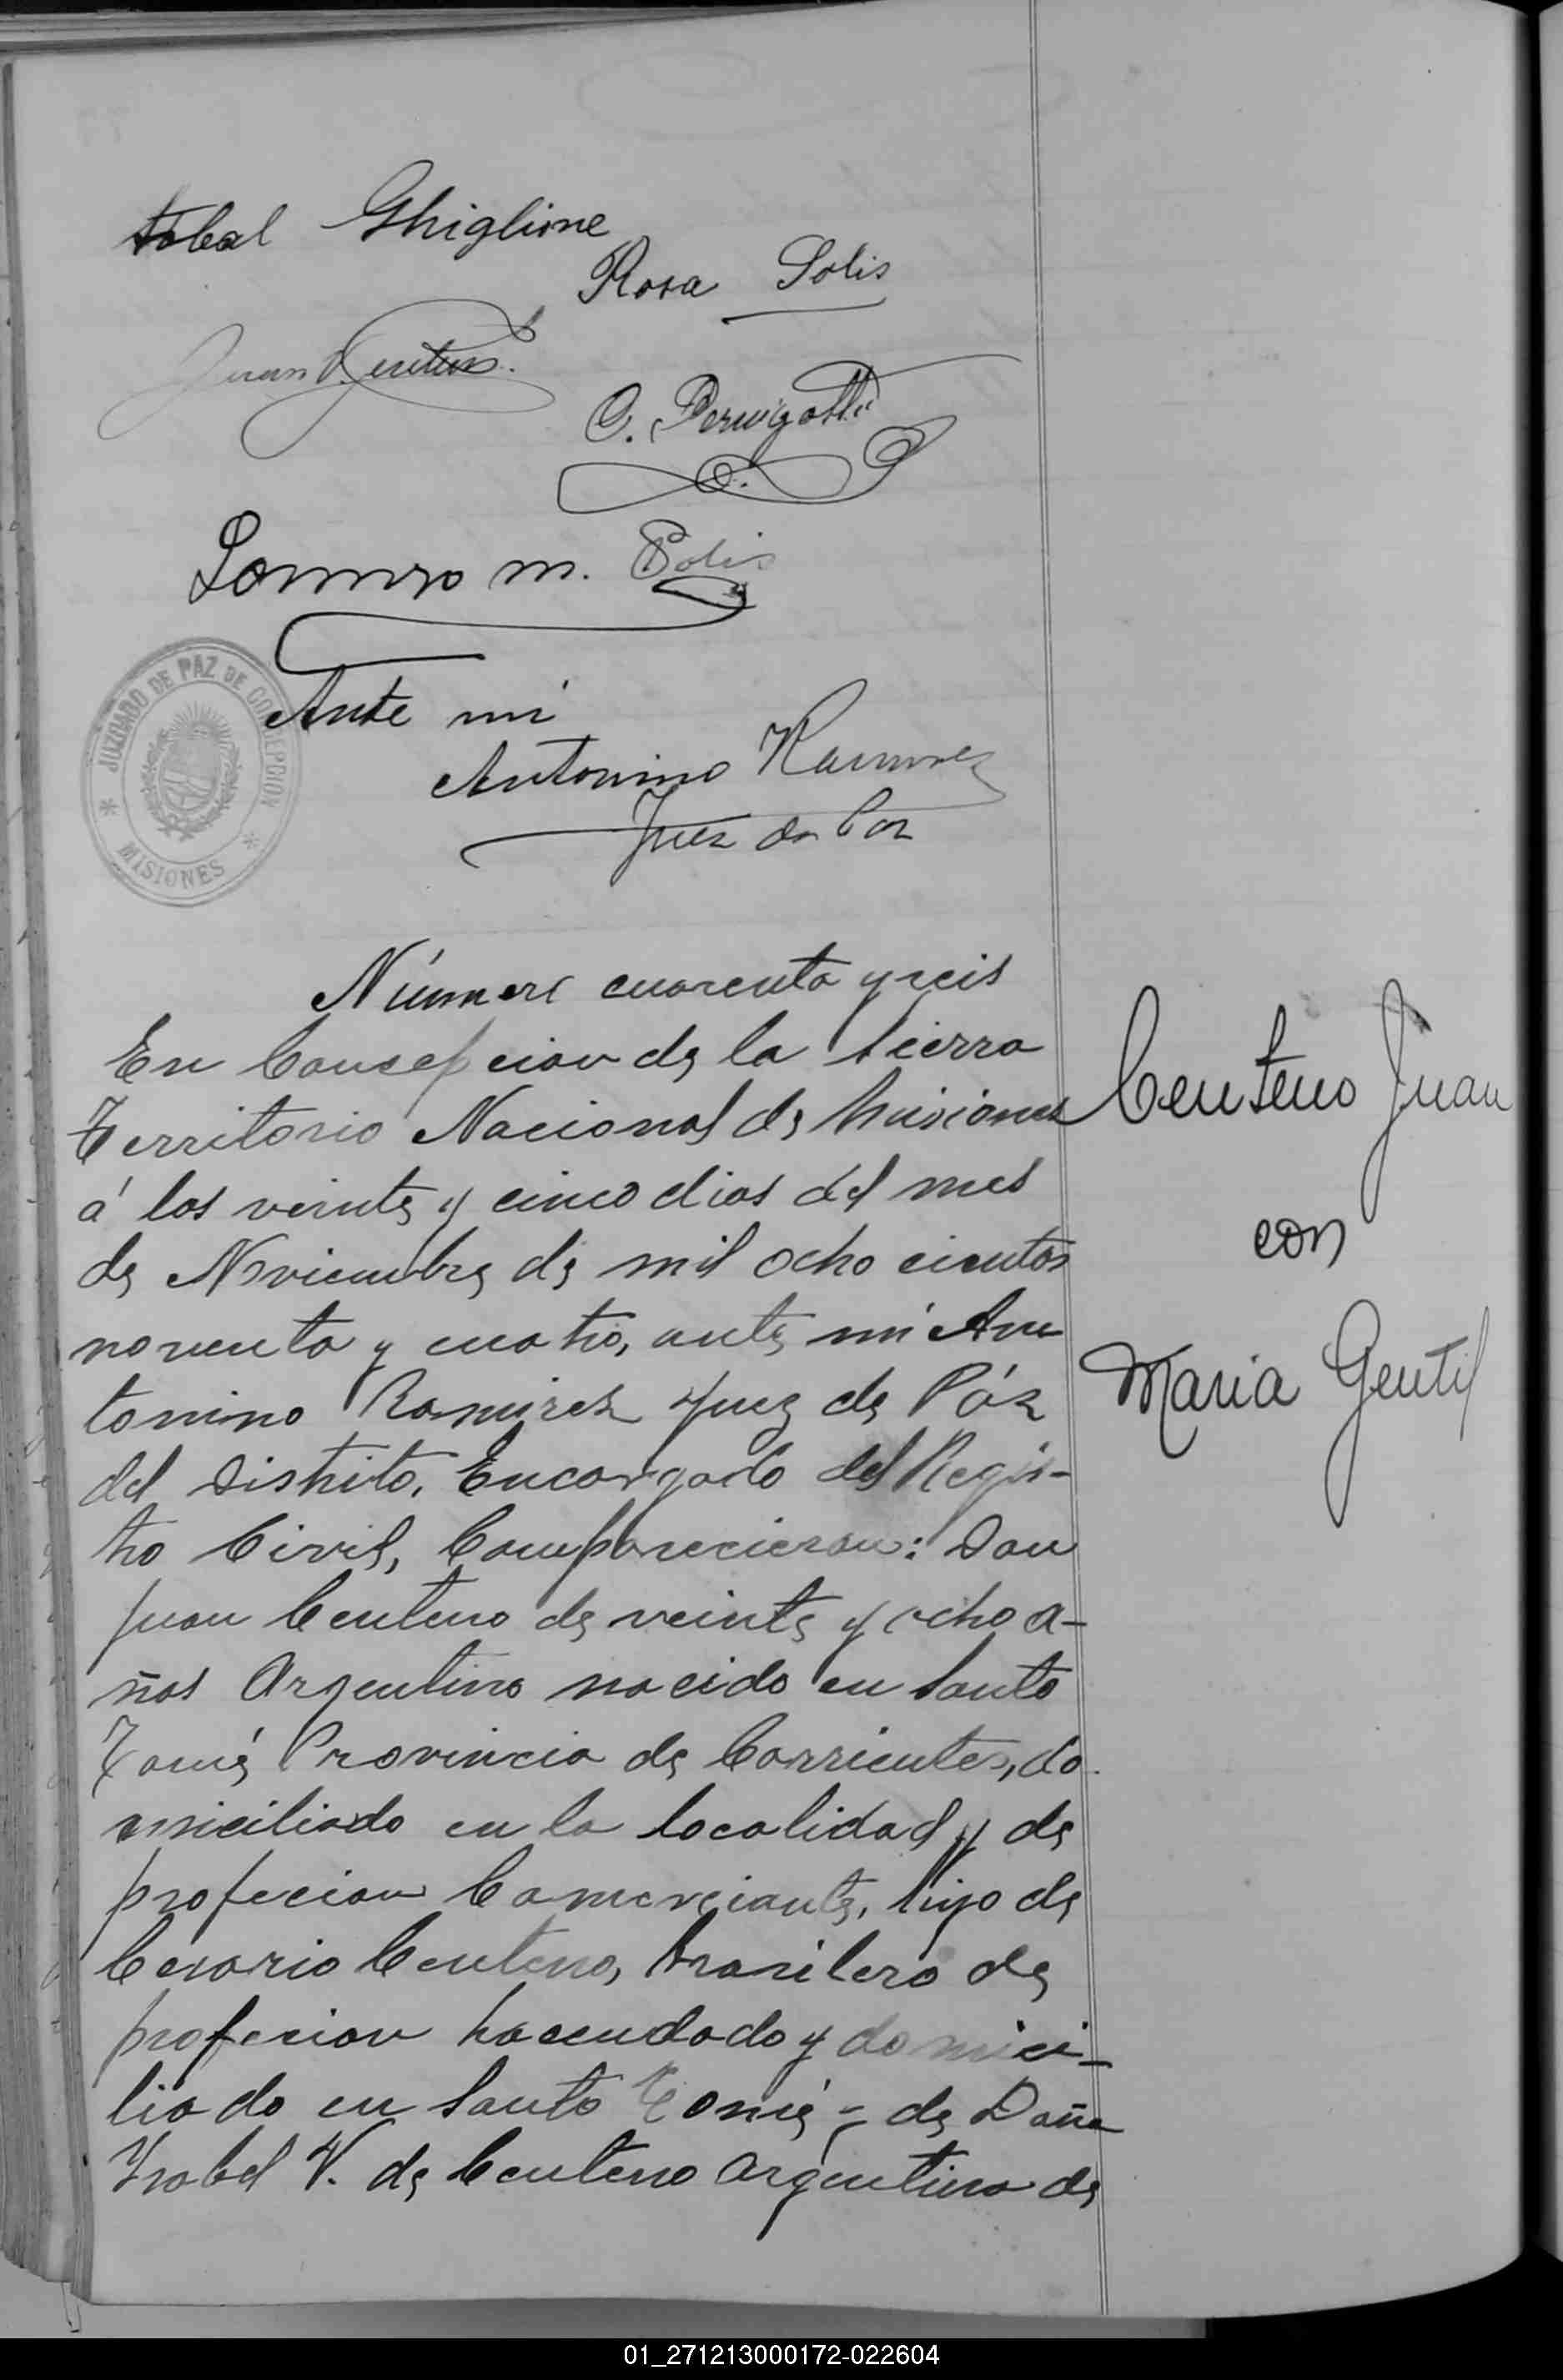 Ghiglione
Rosa Solis
Juan
C. Peruigotti
Lorenzo m. Solis
JUZGADO DE PAZ DE CONCEPCION
MISIONES
Ante mi
Antonino Ramirez
Juez de Paz
Número cuarenta y seis
En Consepcion de la Sierra
Territorio Nacional de Misiones
á los veinte y cinco dias del mes
de Noviembre de mil ocho cientos
noventa y cuatro, ante mi An
tonino Ramirez Juez de Páz
del Distrito, Encargado del Regis-
tro Civil, Comparecieron: Don
Juan Centeno de veinte y ocho a-
ños Argentino nacido en Santo
Tomé Provincia de Corrientes, do-
miciliado en la localidad y de
profecion Comerciante, hijo de
Cesario Centeno, brasilero de
profecion hacendado y domici-
liado en Santo Tomé y de Doña
Ysabel V. de Centeno Argentina de
Centeno Juan
con
Maria Gentil
01_271213000172-022604